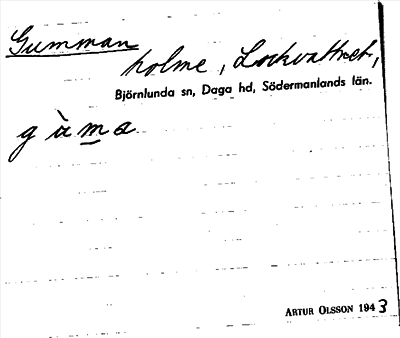 Gumman
holme, Lockvattnet,
Björnlunda sn, Daga hd, Södermanlands län.
gùma
ARTUR OLSSON 1943